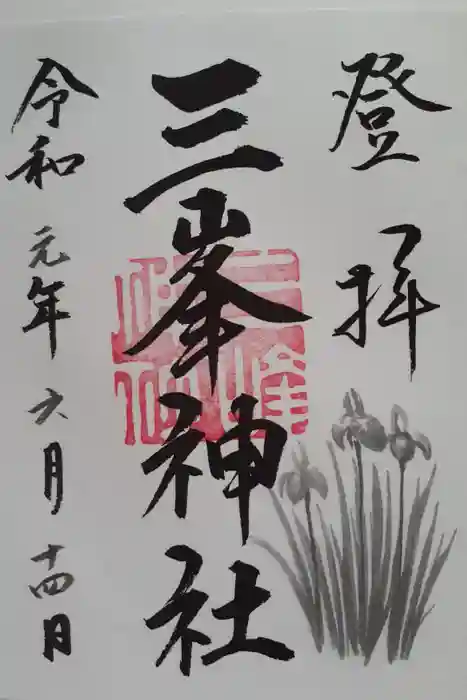 登拝
三峯神社
令和元年六月十四日
三峰
神社